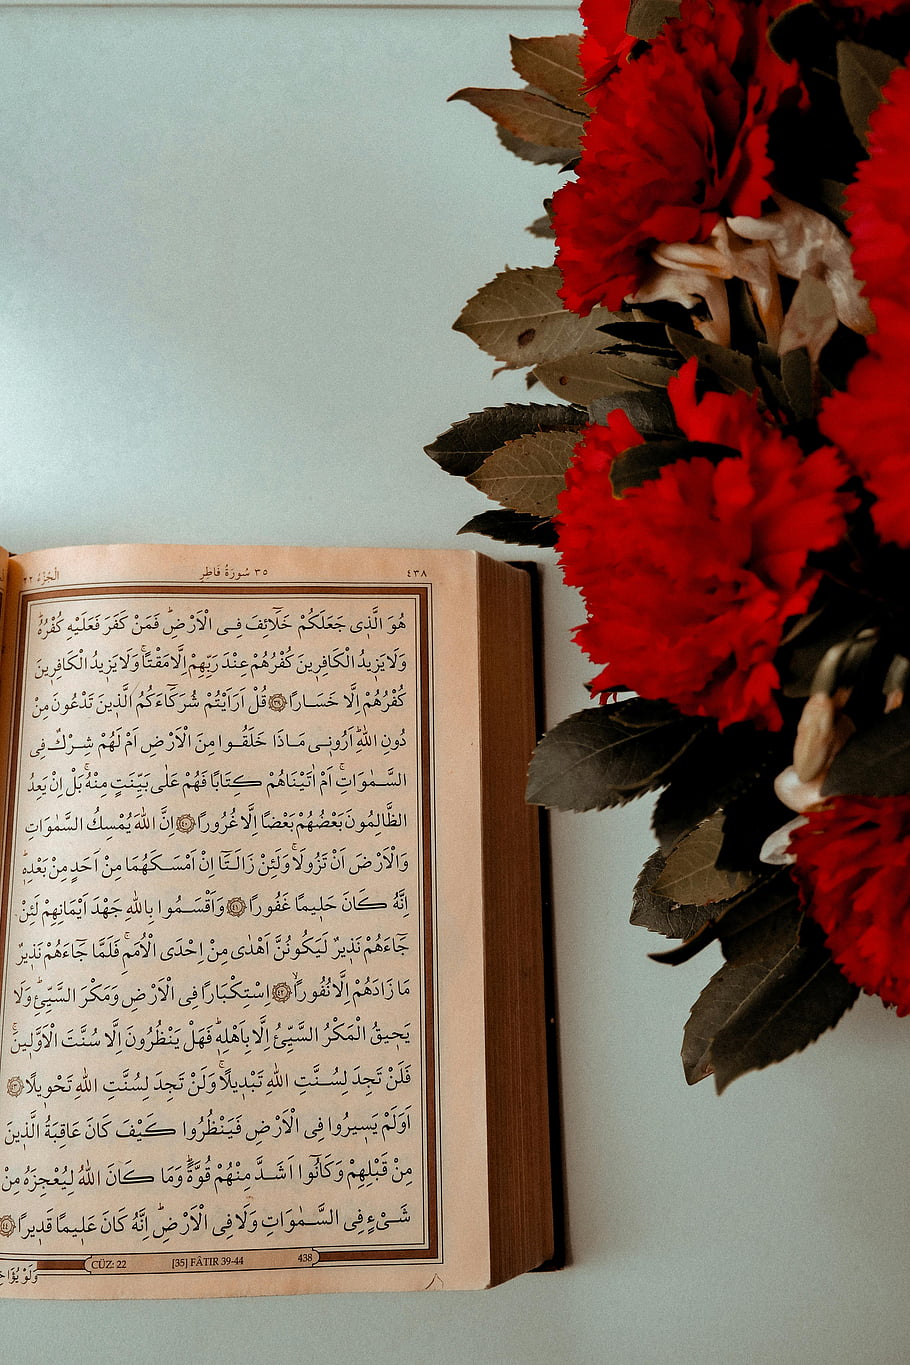 ٤٣٨ ٣٥ سُورَةُ فَاطِرٍ اَلْجُزْءُ ٢٢
هُوَ الَّذٖى جَعَلَكُمْ خَلَٓائِفَ فِى الْاَرْضِؕ فَمَنْ كَفَرَ فَعَلَيْهِ كُفْرُهُؕ
وَلَا يَزٖيدُ الْكَافِرٖينَ كُفْرُهُمْ عِنْدَ رَبِّهِمْ اِلَّا مَقْتًاۚ وَلَا يَزٖيدُ الْكَافِرٖينَ
كُفْرُهُمْ اِلَّا خَسَارًا ﴿٣٩﴾ قُلْ اَرَاَيْتُمْ شُرَكَٓاءَكُمُ الَّذٖينَ تَدْعُونَ مِنْ
دُونِ اللّٰهِؕ اَرُونٖى مَاذَا خَلَقُوا مِنَ الْاَرْضِ اَمْ لَهُمْ شِرْكٌ فِى
السَّمٰوَاتِۚ اَمْ اٰتَيْنَاهُمْ كِتَابًا فَهُمْ عَلٰى بَيِّنَتٍ مِنْهُۚ بَلْ اِنْ يَعِدُ
الظَّالِمُونَ بَعْضُهُمْ بَعْضًا اِلَّا غُرُورًا ﴿٤٠﴾ اِنَّ اللّٰهَ يُمْسِكُ السَّمٰوَاتِ
وَالْاَرْضَ اَنْ تَزُولَاۚ وَلَئِنْ زَالَتَٓا اِنْ اَمْسَكَهُمَا مِنْ اَحَدٍ مِنْ بَعْدِهٖؕ
اِنَّهُ كَانَ حَلٖيمًا غَفُورًا ﴿٤١﴾ وَاَقْسَمُوا بِاللّٰهِ جَهْدَ اَيْمَانِهِمْ لَئِنْ
جَٓاءَهُمْ نَذٖيرٌ لَيَكُونُنَّ اَهْدٰى مِنْ اِحْدَى الْاُمَمِۚ فَلَمَّا جَٓاءَهُمْ نَذٖيرٌ
مَا زَادَهُمْ اِلَّا نُفُورًاۙ ﴿٤٢﴾ اِسْتِكْبَارًا فِى الْاَرْضِ وَمَكْرَ السَّيِّئِؕ وَلَا
يَحٖيقُ الْمَكْرُ السَّيِّئُ اِلَّا بِاَهْلِهٖؕ فَهَلْ يَنْظُرُونَ اِلَّا سُنَّتَ الْاَوَّلٖينَۚ
فَلَنْ تَجِدَ لِسُنَّتِ اللّٰهِ تَبْدٖيلًاۚ وَلَنْ تَجِدَ لِسُنَّتِ اللّٰهِ تَحْوٖيلًا ﴿٤٣﴾
اَوَلَمْ يَسٖيرُوا فِى الْاَرْضِ فَيَنْظُرُوا كَيْفَ كَانَ عَاقِبَةُ الَّذٖينَ
مِنْ قَبْلِهِمْ وَكَانُٓوا اَشَدَّ مِنْهُمْ قُوَّةًؕ وَمَا كَانَ اللّٰهُ لِيُعْجِزَهُ مِنْ
شَىْءٍ فِى السَّمٰوَاتِ وَلَا فِى الْاَرْضِؕ اِنَّهُ كَانَ عَلٖيمًا قَدٖيرًا ﴿٤٤﴾
CÜZ: 22 [35] FÂTIR 39-44 438
وَلَوْ يُؤَاخِ